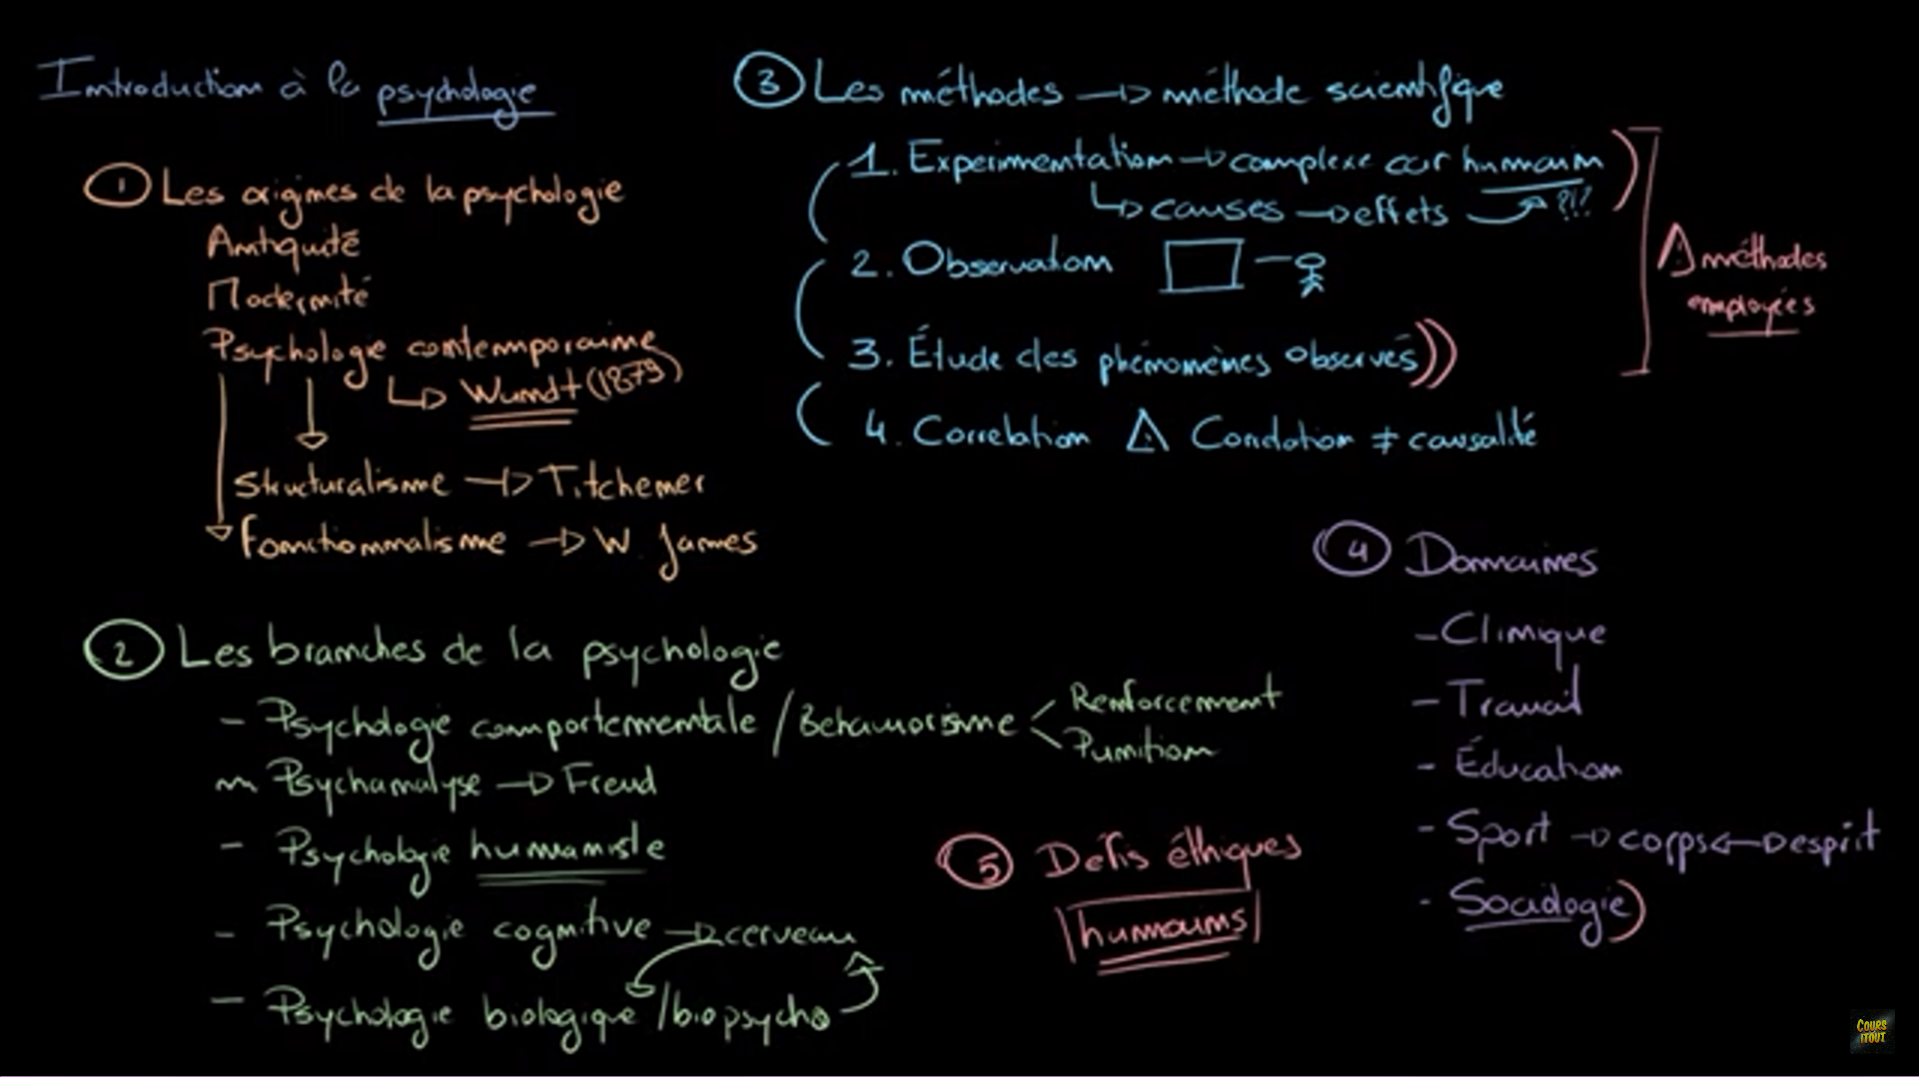 Introduction à la psychologie
① Les origines de la psychologie
Antiquité
Modernité
Psychologie contemporaine
↳ Wundt (1879)
Structuralisme → Titchener
Fonctionnalisme → W. James
② Les branches de la psychologie
- Psychologie comportementale / Behaviorisme < Renforcement
Punition
~ Psychanalyse → Freud
- Psychologie humaniste
- Psychologie cognitive → cerveau
- Psychologie biologique / biopsycho
③ Les méthodes → méthode scientifique
1. Expérimentation → complexe car humain
↳ causes → effets → ?!?
2. Observation
3. Étude des phénomènes observés
4. Corrélation ⚠ Corrélation ≠ causalité
⚠ méthodes
employées
④ Domaines
- Clinique
- Travail
- Éducation
- Sport → corps ↔ esprit
- Sociologie
⑤ Défis éthiques
humains
COURS
ITOUT